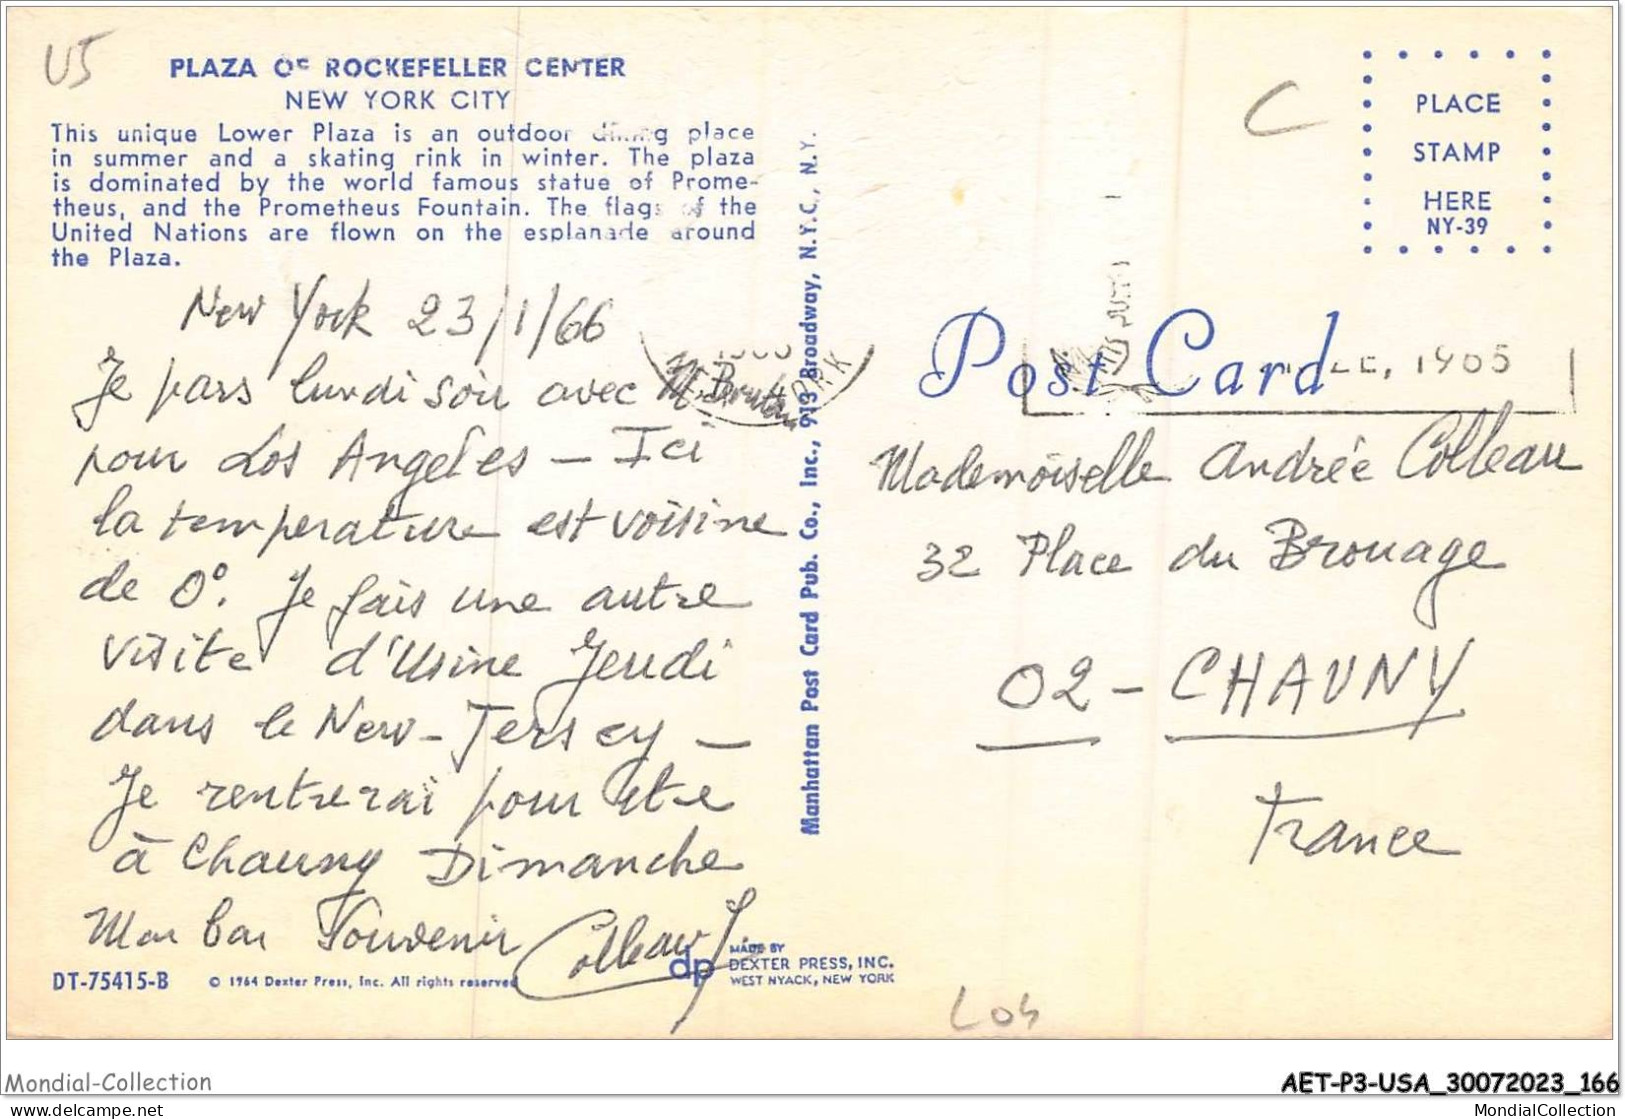 U5
PLAZA OF ROCKEFELLER CENTER
NEW YORK CITY
This unique Lower Plaza is an outdoor dining place
in summer and a skating rink in winter. The plaza
is dominated by the world famous statue of Prome-
theus, and the Prometheus Fountain. The flags of the
United Nations are flown on the esplanade around
the Plaza.
New York 23/1/66
Je pars lundi soir avec Mr.
pour Los Angeles - Ici
la temperature est voisine
de 0°. Je fais une autre
visite d'Usine Jeudi
dans le New-Jersey -
Je rentrerai pour être
à Chauny Dimanche
Mon bon Souvenir Colleau
DT-75415-B
© 1964 Dexter Press, Inc. All rights reserved
dp
MADE BY
DEXTER PRESS, INC.
WEST NYACK, NEW YORK
Manhattan Post Card Pub. Co., Inc., 913 Broadway, N.Y.C., N.Y.
C
PLACE
STAMP
HERE
NY-39
Post Card
, 1965
Mademoiselle Andrée Colleau
32 Place du Brouage
02 - CHAUNY
France
Mondial-Collection
AET-P3-USA_30072023_166
https://www.delcampe.net
MondialCollection